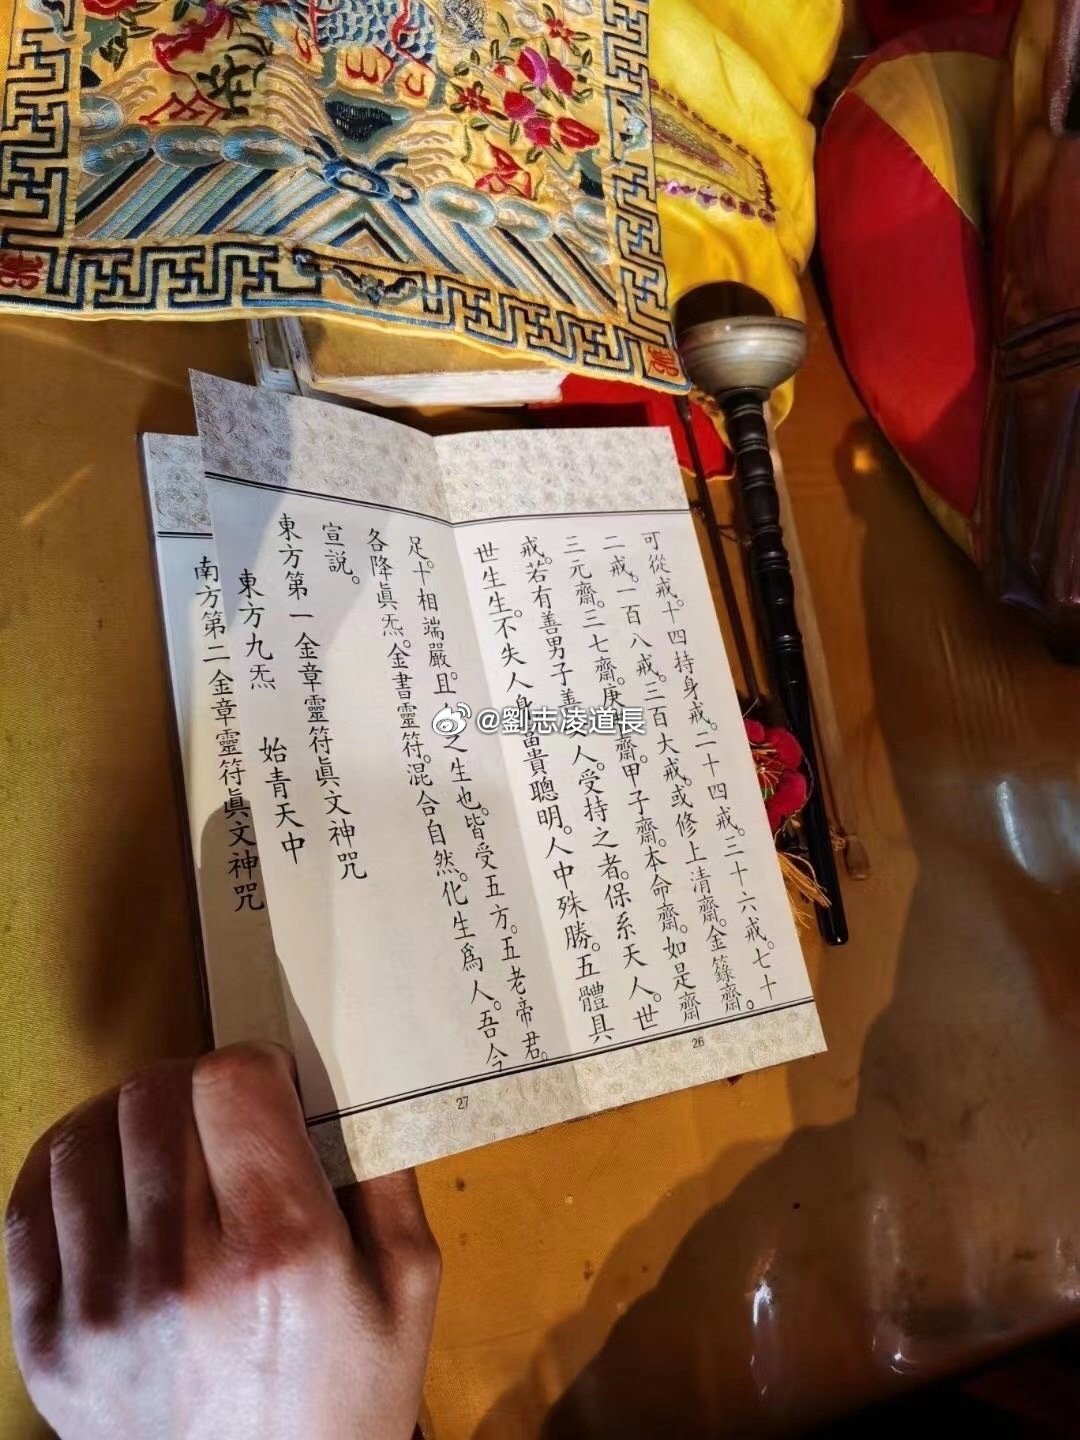 可從戒。十四持身戒。二十四戒。三十六戒。七十
二戒。一百八戒。三百大戒。或修上清齋。金籙齋。
三元齋。三七齋。庚齋。甲子齋。本命齋。如是齋
戒。若有善男子善人。受持之者。保系天人。世
世生生。不失人身。富貴聰明。人中殊勝。五體具
足。十相端嚴。且之生也。皆受五方。五老帝君。
各降眞炁。金書靈符。混合自然。化生爲人。吾今
宣說。
東方第一金章靈符眞文神咒
東方九炁 始青天中
南方第二金章靈符眞文神咒
26
27
@劉志凌道長